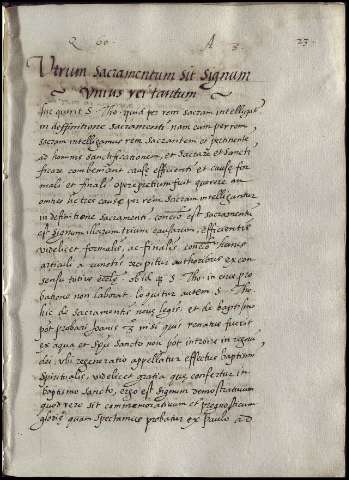 Q. 60. A 3. 23.
Utrum sacramentum sit signum
unius rei tantum
hic querit S. Tho. quid per rem sacram intelligit
in deffinitione sacramenti nam cum per rem
sacram intelligamus rem sacrantem et pertinente
ad hominis santificationem, et sacrare et sancti
ficare combeniant cause efficienti et cause for
mali et finali opere pretium fuit querere an
omnes he tres cause per rem sacram intelligantur
in definitione sacramenti. concio est sacramentu
est signum illarum trium causarum, efficientis
videlicet formalis, ac finalis
articuli a cunctis recipitur authoribus ex con
sensu totius eccles. ob id q S. Tho. in eius pro
batione non laborat. loquitur autem S. Tho.
hic de sacramentis nove legis, et de baptismo
pot probari Joanis 3 nisi quis renatus fuerit
ex aqua et spu sancto non pot introire in regnu
dei. ubi regeneratio appellatur effectus baptismi
spiritualis, videlicet gratia que confertur in
baptismo sancto, ergo est signum demostrativum
quod vero sit commemorativum et prognosticum
glorie quam spectamus probatur ex Paulo ad